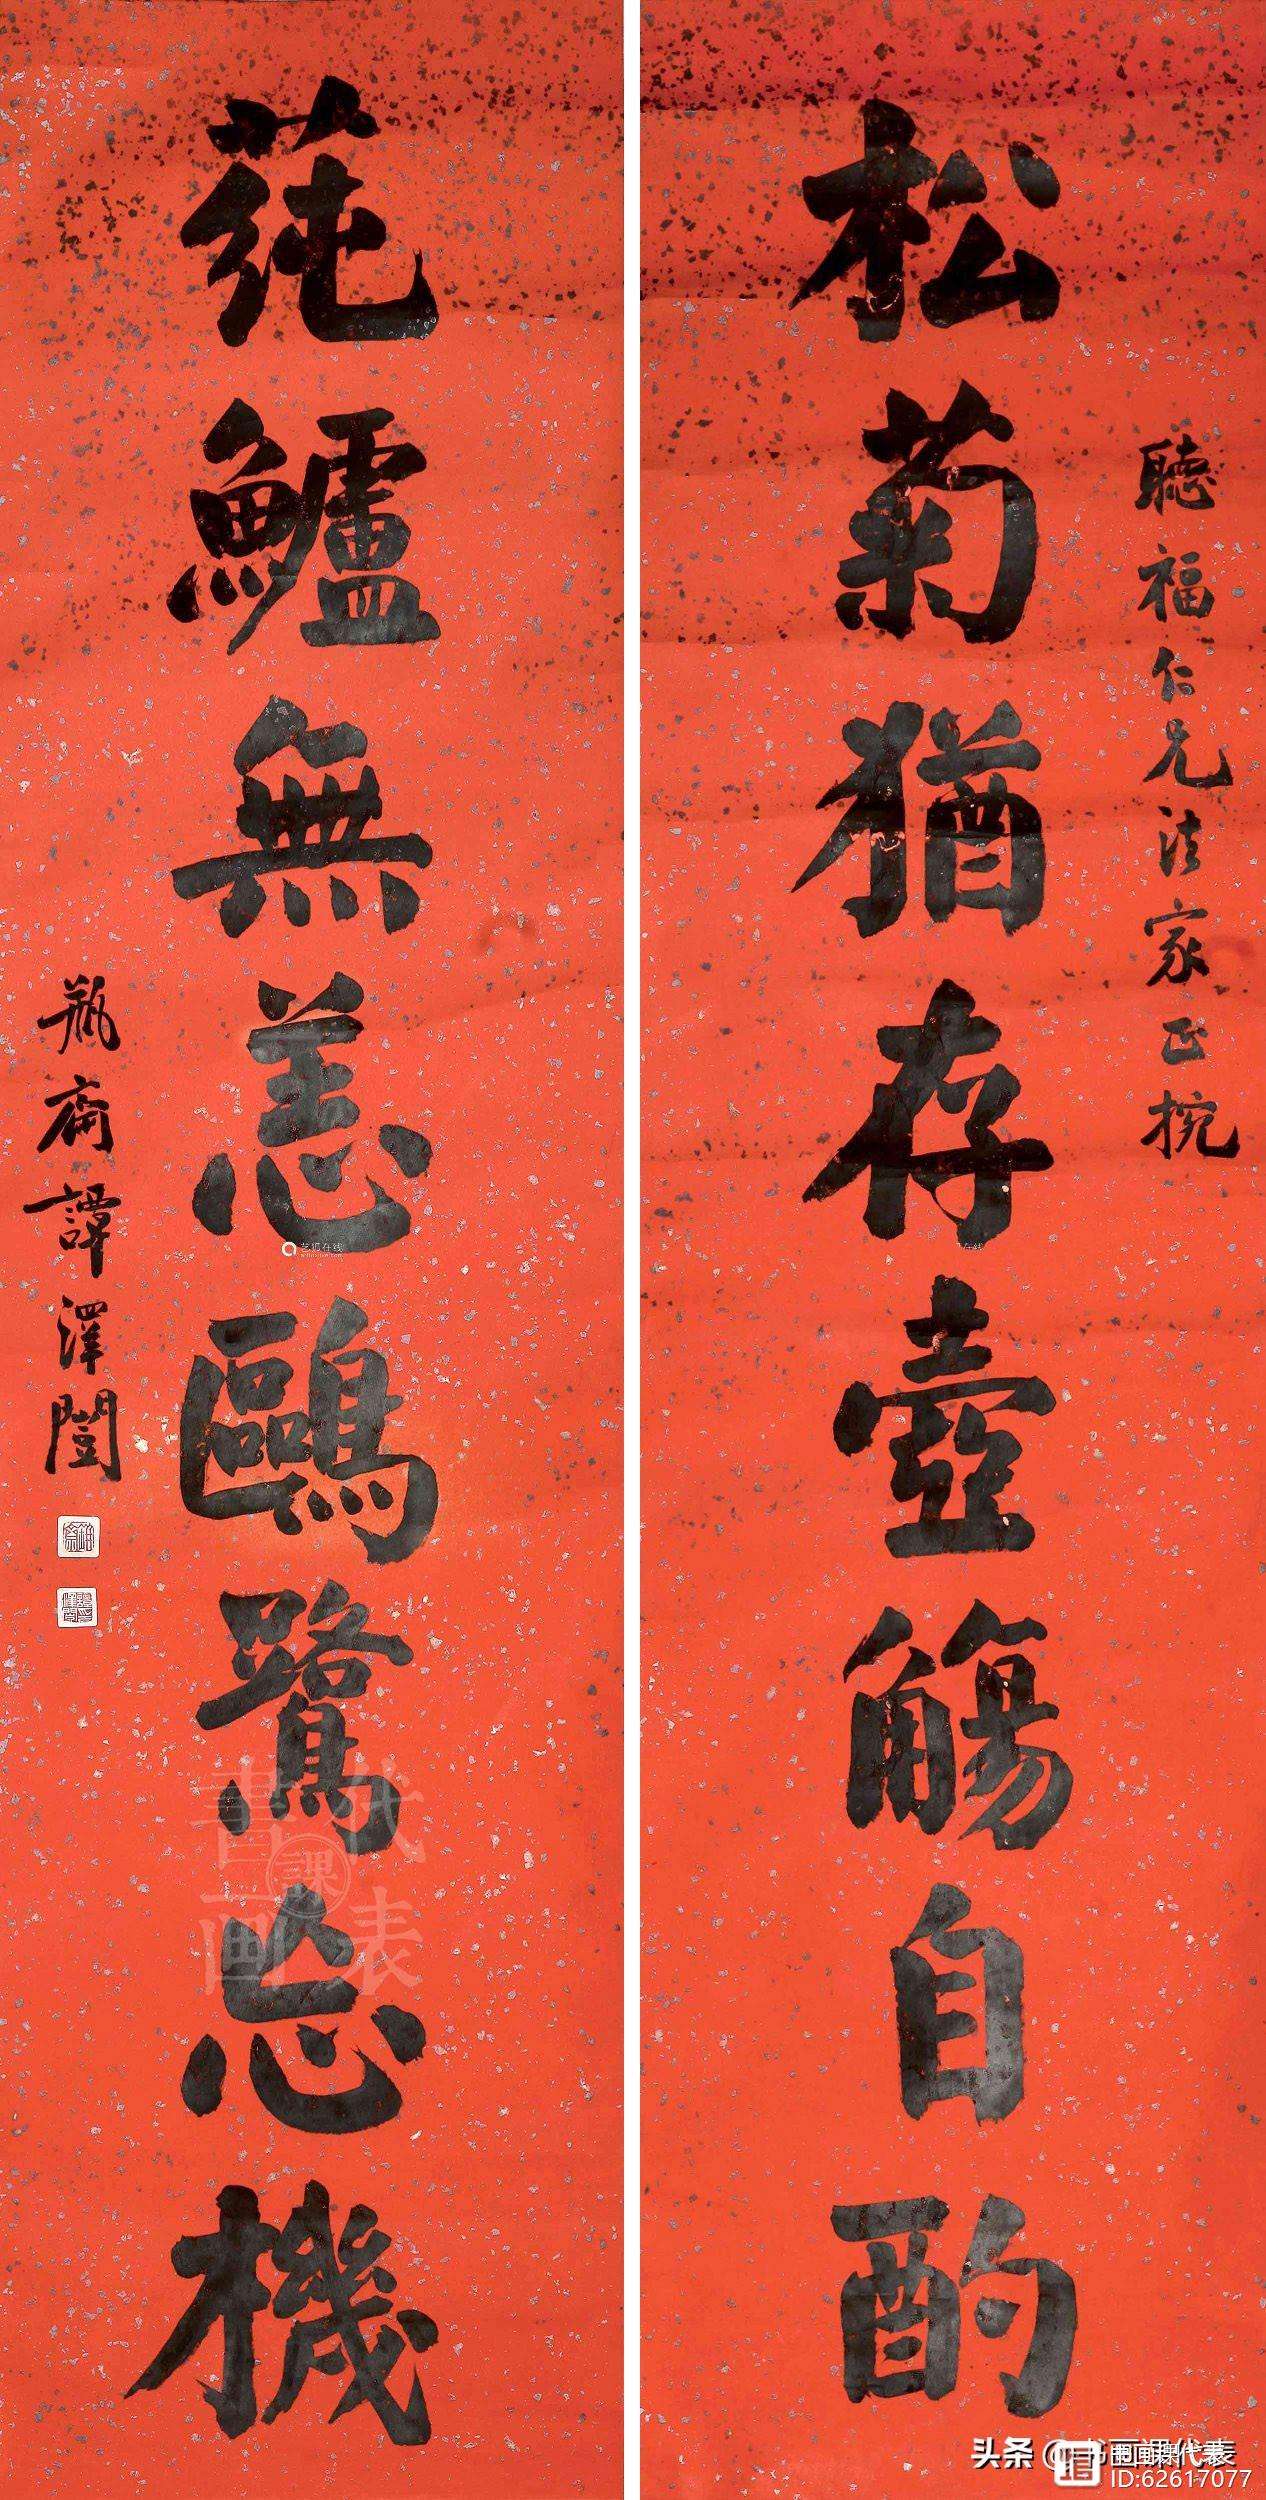 聽福仁兄法家正捥
松菊猶存壺觴自酌
莼鱸無恙鷗鷺忘機
瓶齋譚澤闓
艺狐在线
書画課代表
头条 @书画课代表
ID:62617077